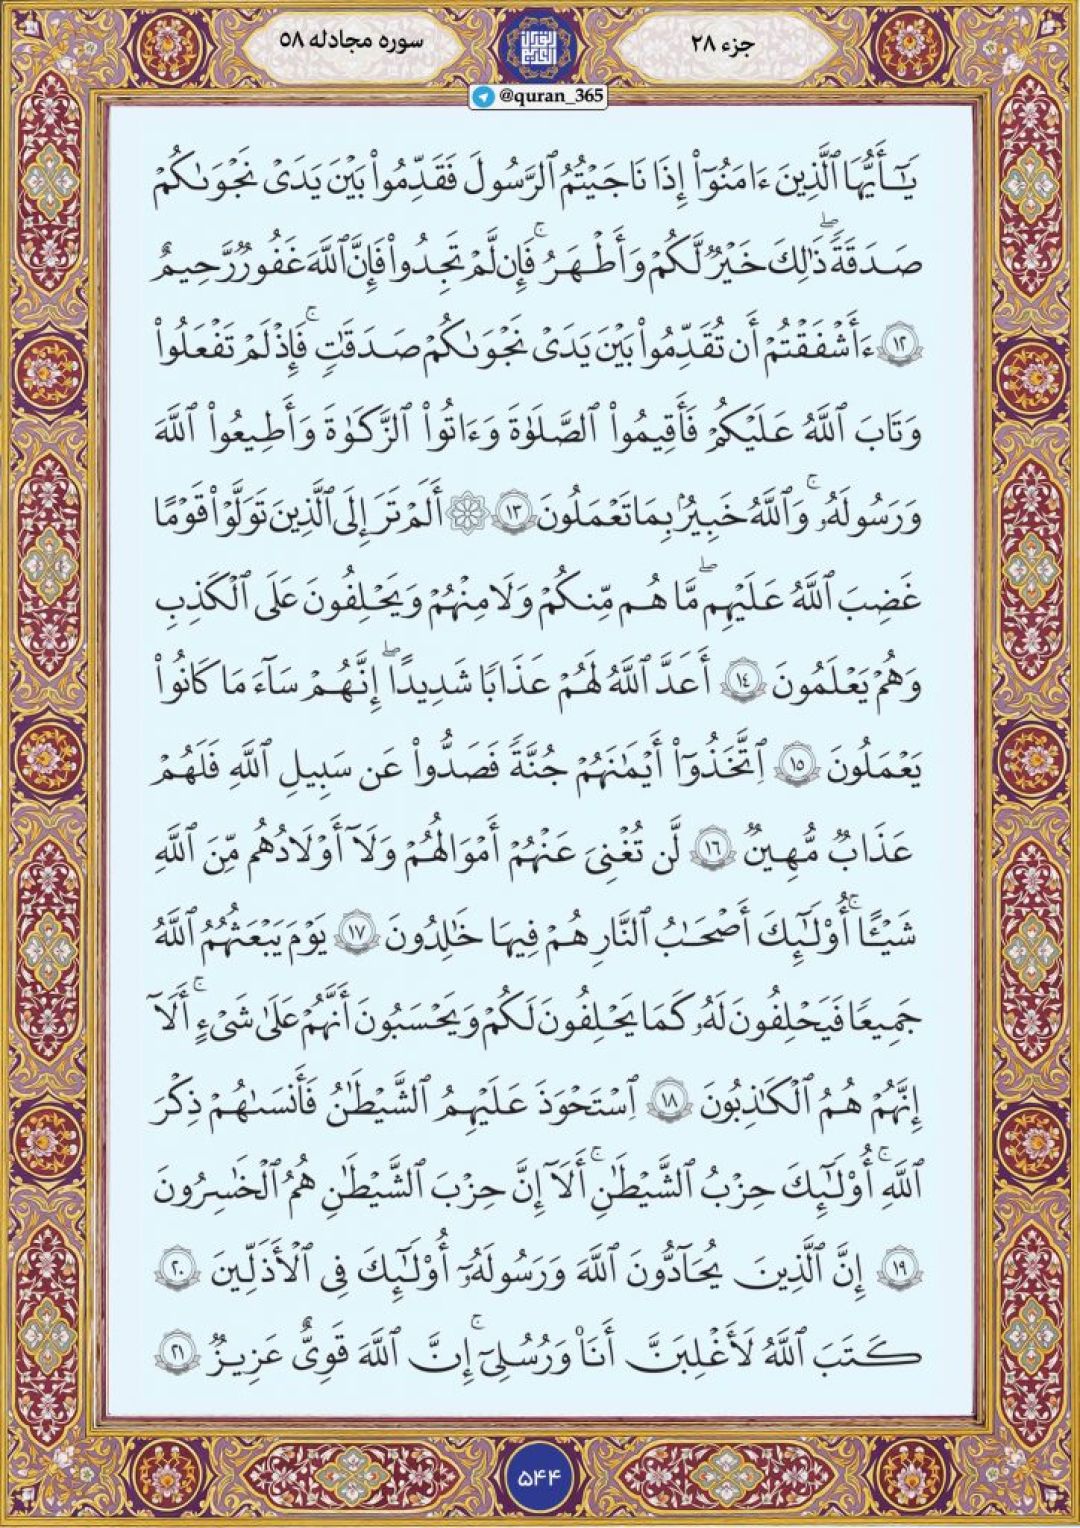 جزء ۲۸
سوره مجادله ۵۸
@quran_365
يَـٰٓأَيُّهَا ٱلَّذِينَ ءَامَنُوٓا۟ إِذَا نَـٰجَيْتُمُ ٱلرَّسُولَ فَقَدِّمُوا۟ بَيْنَ يَدَىْ نَجْوَىٰكُمْ
صَدَقَةً ۖ ذَٰلِكَ خَيْرٌ لَّكُمْ وَأَطْهَرُ ۚ فَإِن لَّمْ تَجِدُوا۟ فَإِنَّ ٱللَّهَ غَفُورٌ رَّحِيمٌ
۱۲ ءَأَشْفَقْتُمْ أَن تُقَدِّمُوا۟ بَيْنَ يَدَىْ نَجْوَىٰكُمْ صَدَقَـٰتٍ ۚ فَإِذْ لَمْ تَفْعَلُوا۟
وَتَابَ ٱللَّهُ عَلَيْكُمْ فَأَقِيمُوا۟ ٱلصَّلَوٰةَ وَءَاتُوا۟ ٱلزَّكَوٰةَ وَأَطِيعُوا۟ ٱللَّهَ
وَرَسُولَهُۥ ۚ وَٱللَّهُ خَبِيرٌۢ بِمَا تَعْمَلُونَ ۱۳ ۞ أَلَمْ تَرَ إِلَى ٱلَّذِينَ تَوَلَّوْا۟ قَوْمًا
غَضِبَ ٱللَّهُ عَلَيْهِم ۖ مَّا هُم مِّنكُمْ وَلَا مِنْهُمْ وَيَحْلِفُونَ عَلَى ٱلْكَذِبِ
وَهُمْ يَعْلَمُونَ ۱۴ أَعَدَّ ٱللَّهُ لَهُمْ عَذَابًا شَدِيدًا ۖ إِنَّهُمْ سَآءَ مَا كَانُوا۟
يَعْمَلُونَ ۱۵ ٱتَّخَذُوٓا۟ أَيْمَـٰنَهُمْ جُنَّةً فَصَدُّوا۟ عَن سَبِيلِ ٱللَّهِ فَلَهُمْ
عَذَابٌ مُّهِينٌ ۱۶ لَّن تُغْنِىَ عَنْهُمْ أَمْوَٰلُهُمْ وَلَآ أَوْلَـٰدُهُم مِّنَ ٱللَّهِ
شَيْـًٔا ۚ أُو۟لَـٰٓئِكَ أَصْحَـٰبُ ٱلنَّارِ هُمْ فِيهَا خَـٰلِدُونَ ۱۷ يَوْمَ يَبْعَثُهُمُ ٱللَّهُ
جَمِيعًا فَيَحْلِفُونَ لَهُۥ كَمَا يَحْلِفُونَ لَكُمْ وَيَحْسَبُونَ أَنَّهُمْ عَلَىٰ شَىْءٍ ۚ أَلَآ
إِنَّهُمْ هُمُ ٱلْكَـٰذِبُونَ ۱۸ ٱسْتَحْوَذَ عَلَيْهِمُ ٱلشَّيْطَـٰنُ فَأَنسَىٰهُمْ ذِكْرَ
ٱللَّهِ ۚ أُو۟لَـٰٓئِكَ حِزْبُ ٱلشَّيْطَـٰنِ ۚ أَلَآ إِنَّ حِزْبَ ٱلشَّيْطَـٰنِ هُمُ ٱلْخَـٰسِرُونَ
۱۹ إِنَّ ٱلَّذِينَ يُحَآدُّونَ ٱللَّهَ وَرَسُولَهُۥٓ أُو۟لَـٰٓئِكَ فِى ٱلْأَذَلِّينَ ۲۰
كَتَبَ ٱللَّهُ لَأَغْلِبَنَّ أَنَا۠ وَرُسُلِىٓ ۚ إِنَّ ٱللَّهَ قَوِىٌّ عَزِيزٌ ۲۱
۵۴۴